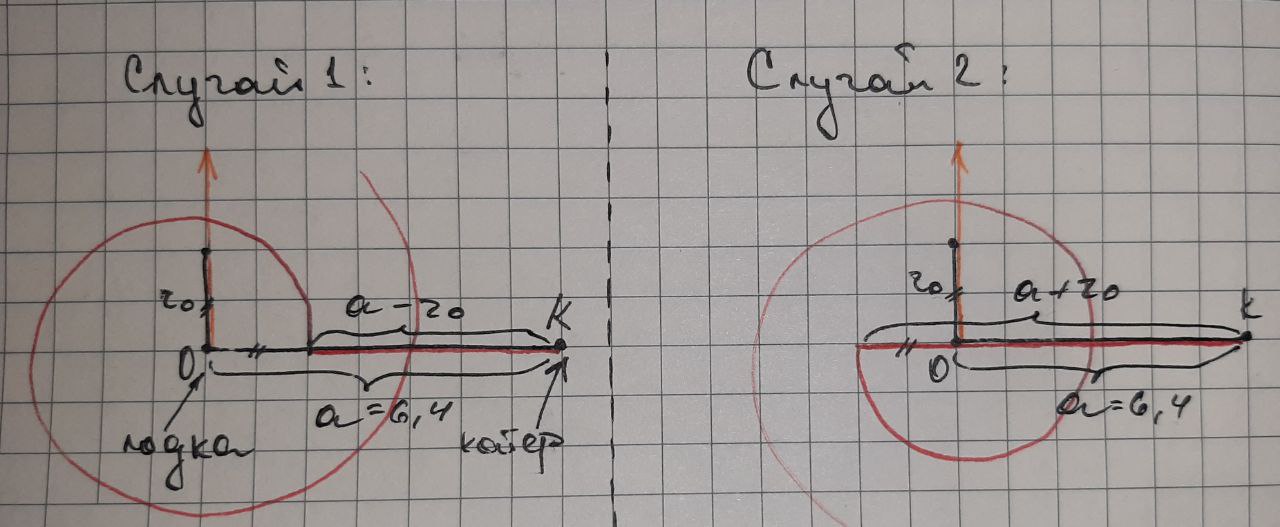 Случай 1:
r₀
a - r₀
K
O
a = 6,4
лодка
катер
Случай 2:
r₀
a + r₀
K
O
a = 6,4